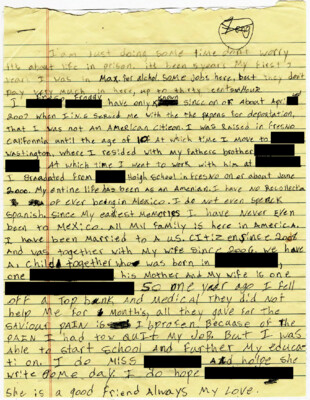 I am just doing some time don't worry
its about life in prison. Its been 5 years My first 2
years I was in Max. for alchol some jobs here, but they don't
pay very much in here, up to thirty cents/Hour
I have only known since on or about Apr
2007 when I.N.S served me with the the papers for deportation,
that I was not an American citizen. I was raised in Fresno
California until the age of 10 at which time I move to
Washington, where I resided with my Fathers brother
At which time I went to work with him at
I Graduated From High school in Fresno on or about June
2000. My entire life has been as an American. I have no Recollection
of ever being in Mexico. I do not even speak
Spanish. Since My earliest Memories I have never even
been to Mexico. All My family is here in America.
I have been Married to A U.S. Citizen since
And was together with My wife since 2006. we have
A child together who was born in
one his Mother and My wife is one
So one year ago I fell
off Top bunk and Medical They did not
help Me For 6 Months, all they gave for the
pain is Because of the
PAIN I had to quit My Job. But I was
able to start school and Further My educa-
tion. I do MISS And hope she
write some day. I do hope
She is a good Friend Always My Love.